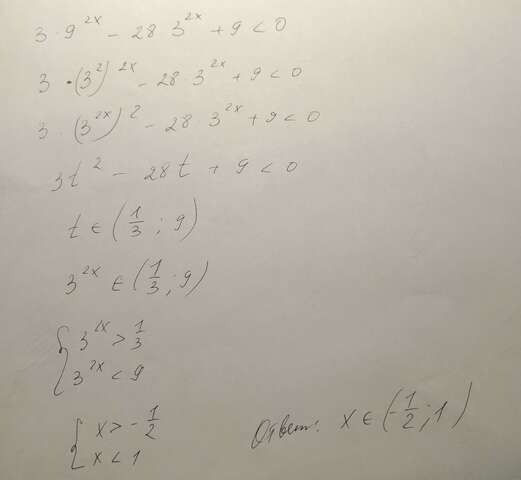 3 · 9^{2x} − 28 · 3^{2x} + 9 < 0
3 · (3^2)^{2x} − 28 · 3^{2x} + 9 < 0
3 · (3^{2x})^2 − 28 · 3^{2x} + 9 < 0
3t^2 − 28t + 9 < 0
t ∈ (1/3 ; 9)
3^{2x} ∈ (1/3 ; 9)
{ 3^{2x} > 1/3
3^{2x} < 9
{ x > −1/2
x < 1
Ответ: x ∈ (−1/2 ; 1)